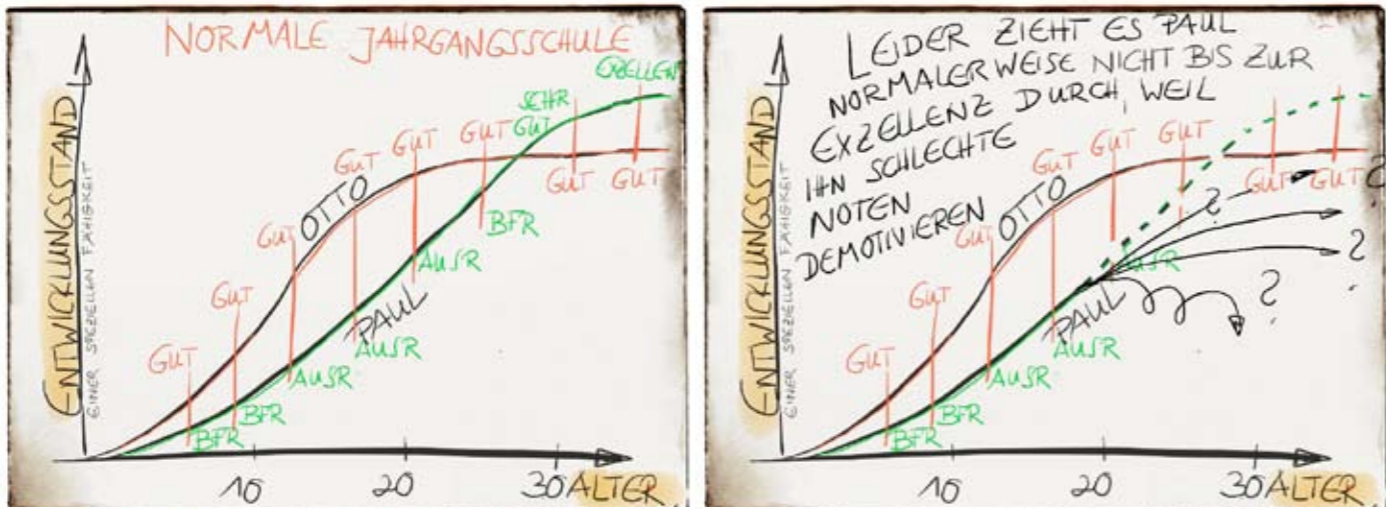 NORMALE JAHRGANGSSCHULE
ENTWICKLUNGSSTAND
EINER SPEZIELLEN FÄHIGKEIT
EXZELLEN
SEHR
GUT
GUT
GUT
GUT
GUT
GUT
GUT
GUT
GUT
OTTO
PAUL
BFR
BFR
AUSR
AUSR
AUSR
BFR
10
20
30
ALTER
LEIDER ZIEHT ES PAUL
NORMALERWEISE NICHT BIS ZUR
EXZELLENZ DURCH, WEIL
IHN SCHLECHTE
NOTEN
DEMOTIVIEREN
ENTWICKLUNGSSTAND
EINER SPEZIELLEN FÄHIGKEIT
GUT
GUT
GUT
GUT
GUT
GUT
GUT
GUT
OTTO
PAUL
BFR
BFR
AUSR
AUSR
AUSR
?
?
?
10
20
30
ALTER